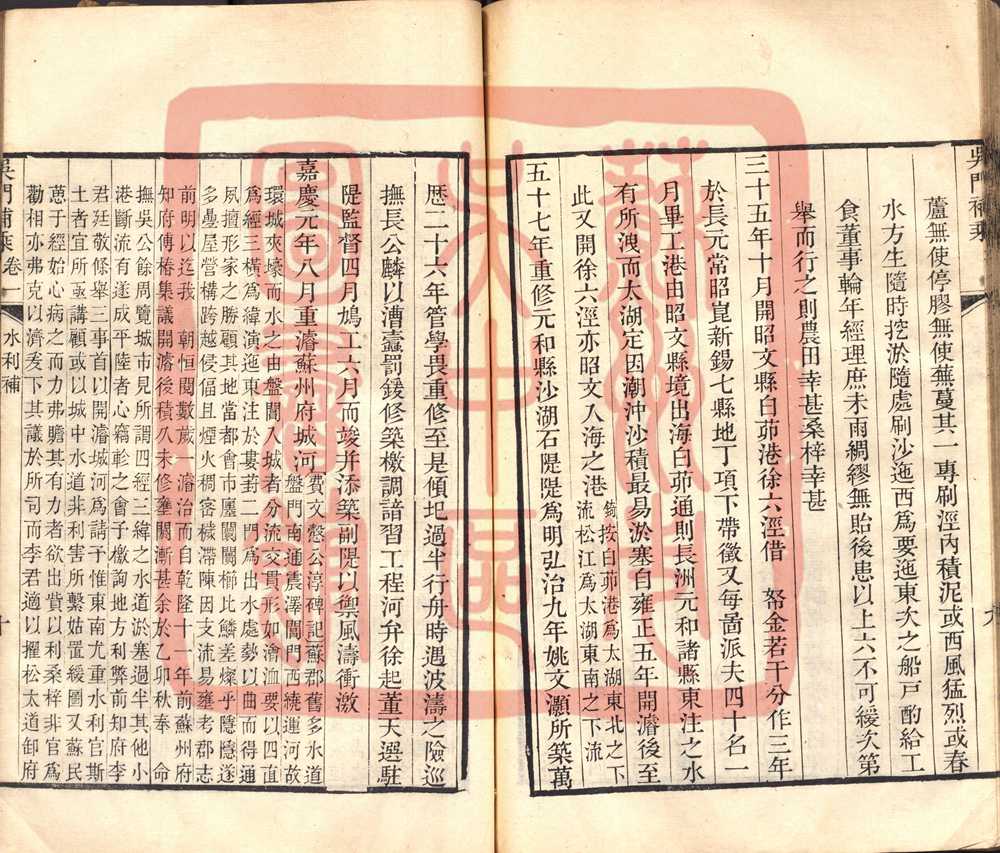 吳門補乘
蘆無使停膠無使蕪蔓其一專刷涇內積泥或西風猛烈或春
水方生隨時挖淤隨處刷沙迤西爲要迤東次之船戸酌給工
食董事輪年經理庶未雨綢繆無貽後患以上六不可緩次第
舉而行之則農田幸甚桑梓幸甚
三十五年十月開昭文縣白茆港徐六涇借 帑金若干分作三年
於長元常昭崑新錫七縣地丁項下帶徵又每啚派夫四十名一
月畢工港由昭文縣境出海白茆通則長洲元和諸縣東注之水
有所洩而太湖定因潮沖沙積最易淤塞自雍正五年開濬後至
此又開徐六涇亦昭文入海之港
錡按白茆港爲太湖東北之下
流松江爲太湖東南之下流
五十七年重修元和縣沙湖石隄隄爲明弘治九年姚文灝所築萬
九
厯二十六年管學畏重修至是傾圯過半行舟時遇波濤之險巡
撫長公麟以漕蠹罰鍰修築檄調諳習工程河弁徐起董天選駐
隄監督四月鳩工六月而竣并添築副隄以禦風濤衝激
嘉慶元年八月重濬蘇州府城河
費文愨公淳碑記蘇郡舊多水道
盤門南通震澤閶門西繞運河故
環城夾壕而水之由盤閶入城者分流交貫形如澮洫要以四直
爲經三橫爲緯演迤東注於婁葑二門爲出水處勢以曲而得通
夙擅形家之勝顧其地當都會市廛闤闠櫛比鱗差燦乎隱隱遂
多壘屋營構跨越侵偪且煙火稠密穢滯陳因支流易壅考郡志
前明以迄我 朝恒閱數歲一濬治而自乾隆十一年前蘇州府
知府傅椿集議開濬後積久未修壅閼漸甚余於乙卯秋奉 命
撫吳公餘周覽城市見所謂四經三緯之水道淤塞過半其他小
港斷流有遂成平陸者心竊軫之會予檄詢地方利弊前知府李
君廷敬條舉三事首以開濬城河爲請于惟東南尤重水利官斯
土者宜所亟講顧或以城中水道非利害所繫姑置緩圖又蘇民
蒽于經始心病之而力弗贍其有力者欲出貲以利桑梓非官爲
勸相亦弗克以濟爰下其議於所司而李君適以擢松太道卸府
吳門補乘 卷一 水利補 十